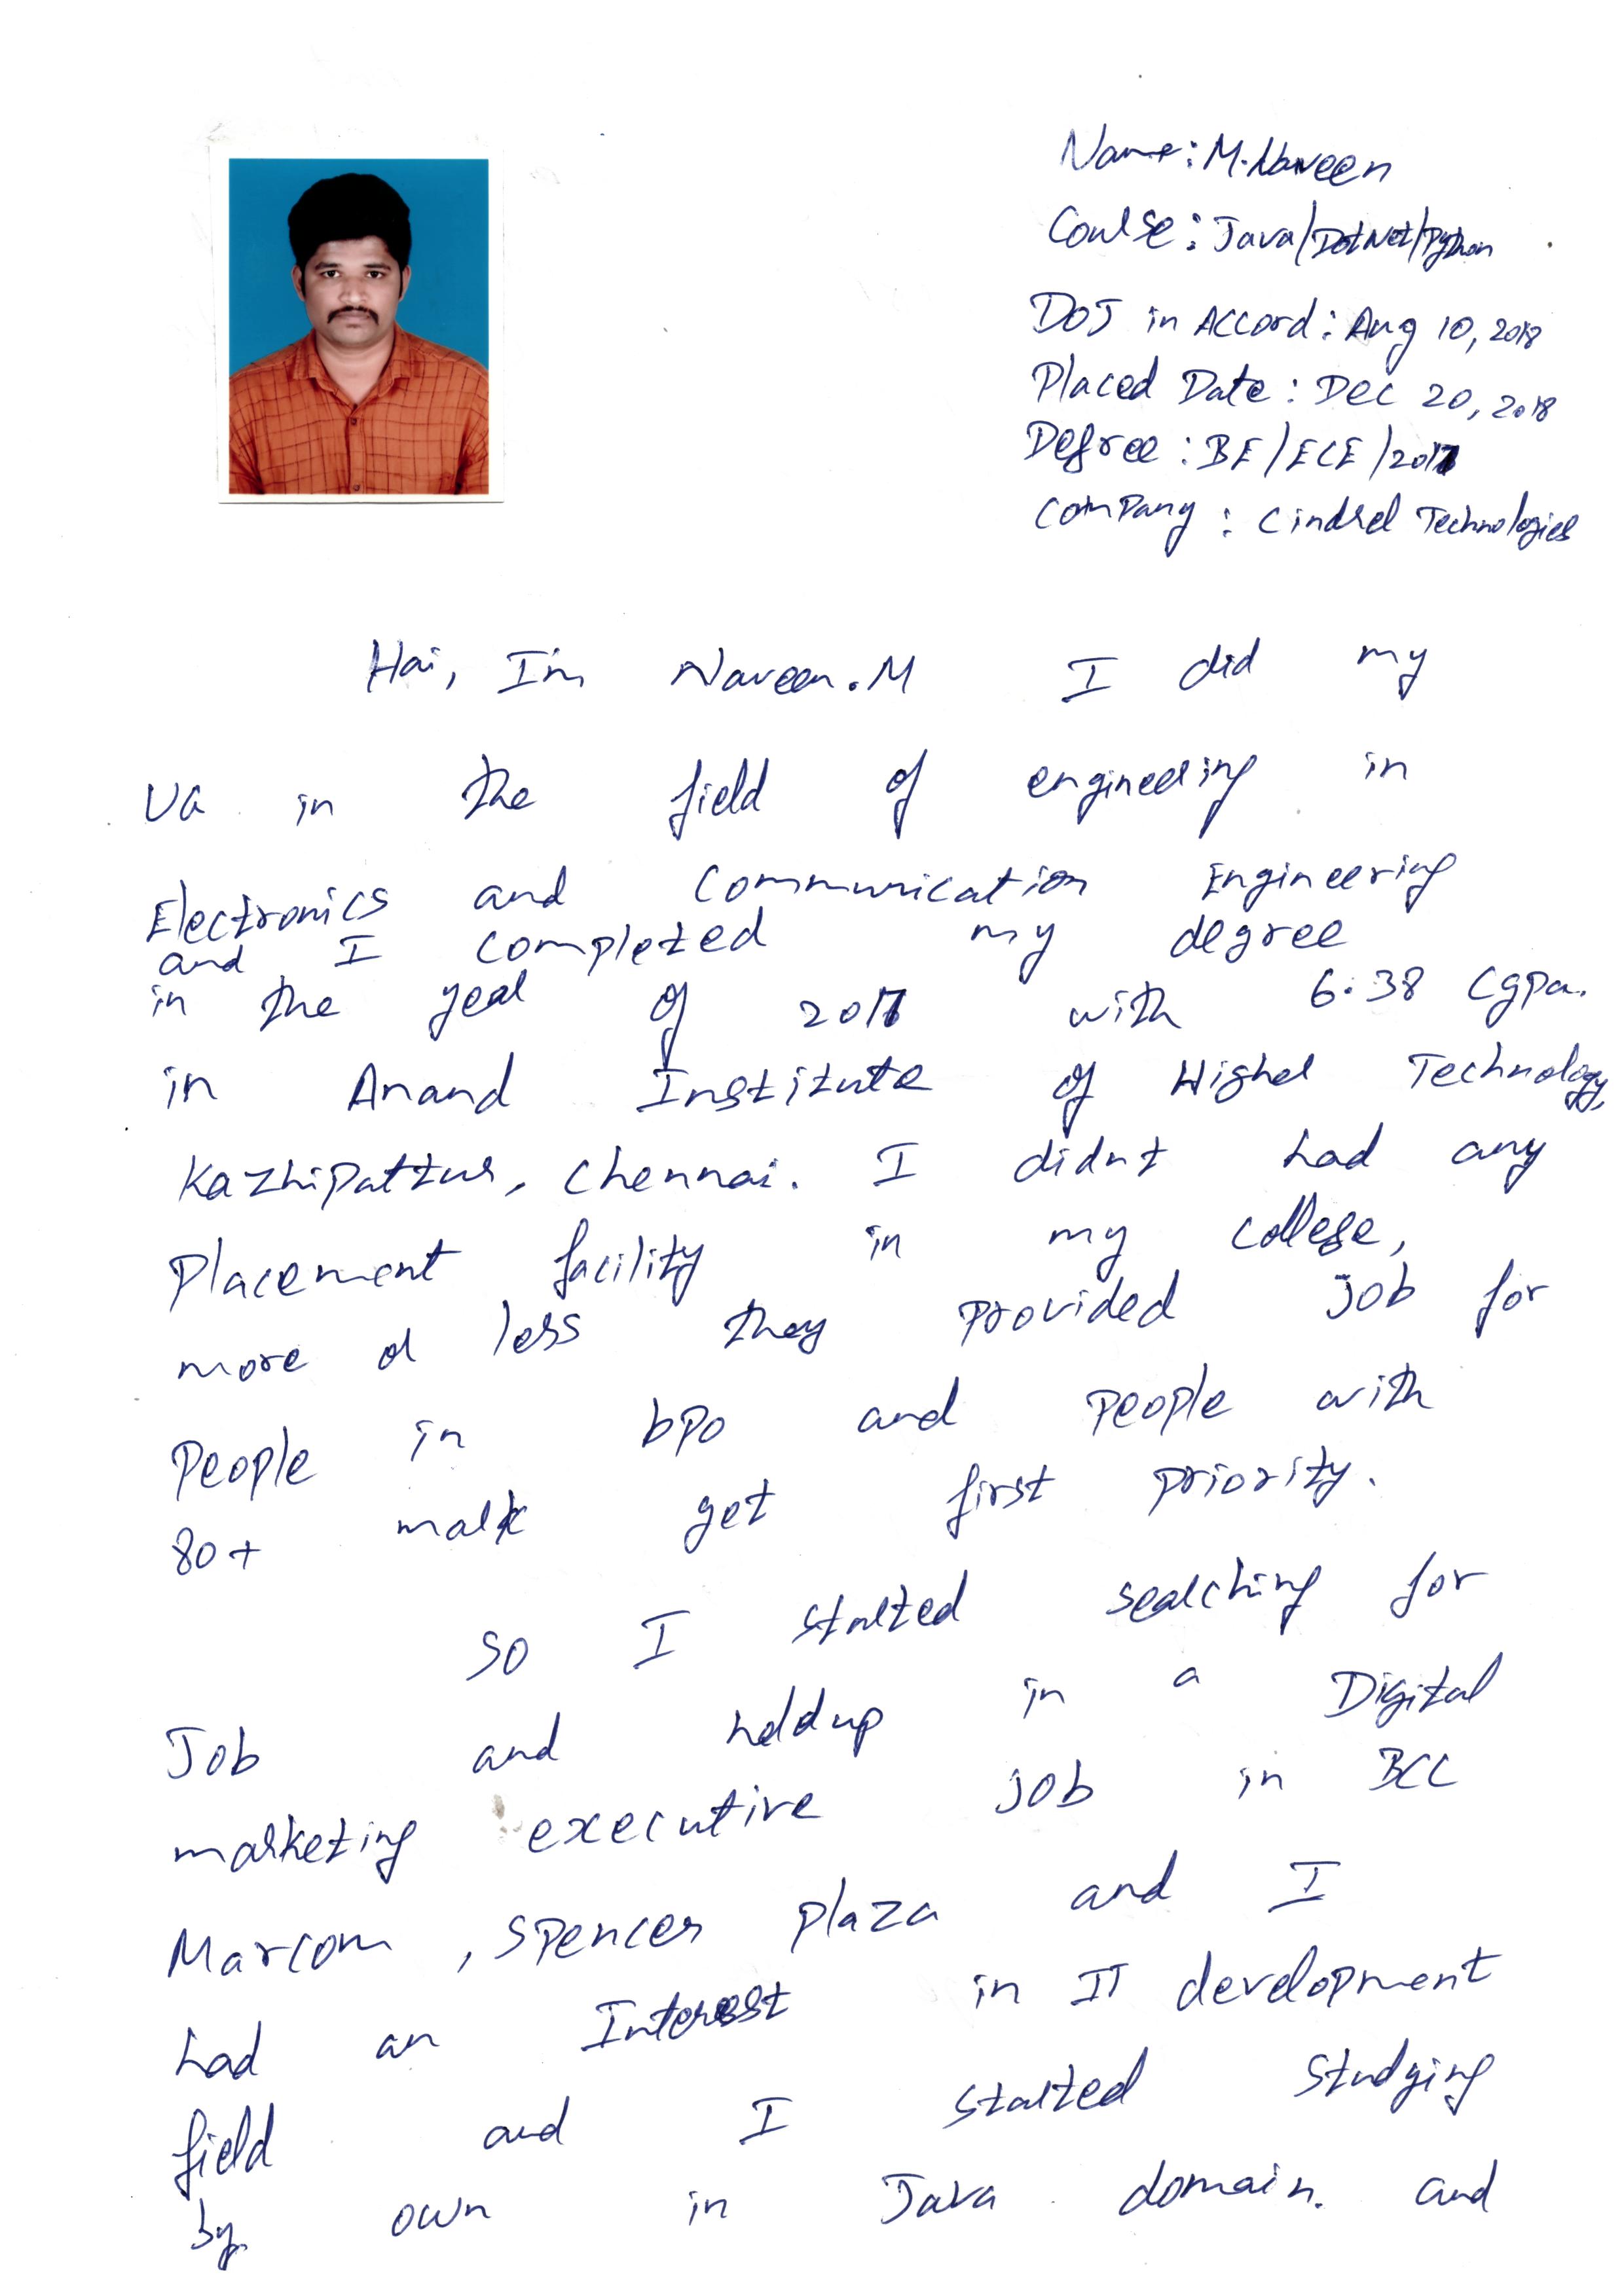 Name: M. Naveen
Course: Java/DotNet/Python
DOJ in Accord: Aug 10, 2018
Placed Date: Dec 20, 2018
Degree: BE/ECE/2017
Company: Cindrel Technologies
Hai, I'm Naveen.M I did my
UG in the field of engineering in
Electronics and Communication Engineering
and I completed my degree
in the year of 2017 with 6.38 Cgpa.
in Anand Institute of Higher Technology,
Kazhipattur, Chennai. I didn't had any
Placement facility in my college,
more or less they provided job for
People in bpo and people with
80+ mark get first priority.
So I started searching for
Job and holdup in a Digital
marketing executive job in BCC
Marcom, Spencer plaza and I
had an Interest in IT development
field and I started studying
by own in Java domain. and